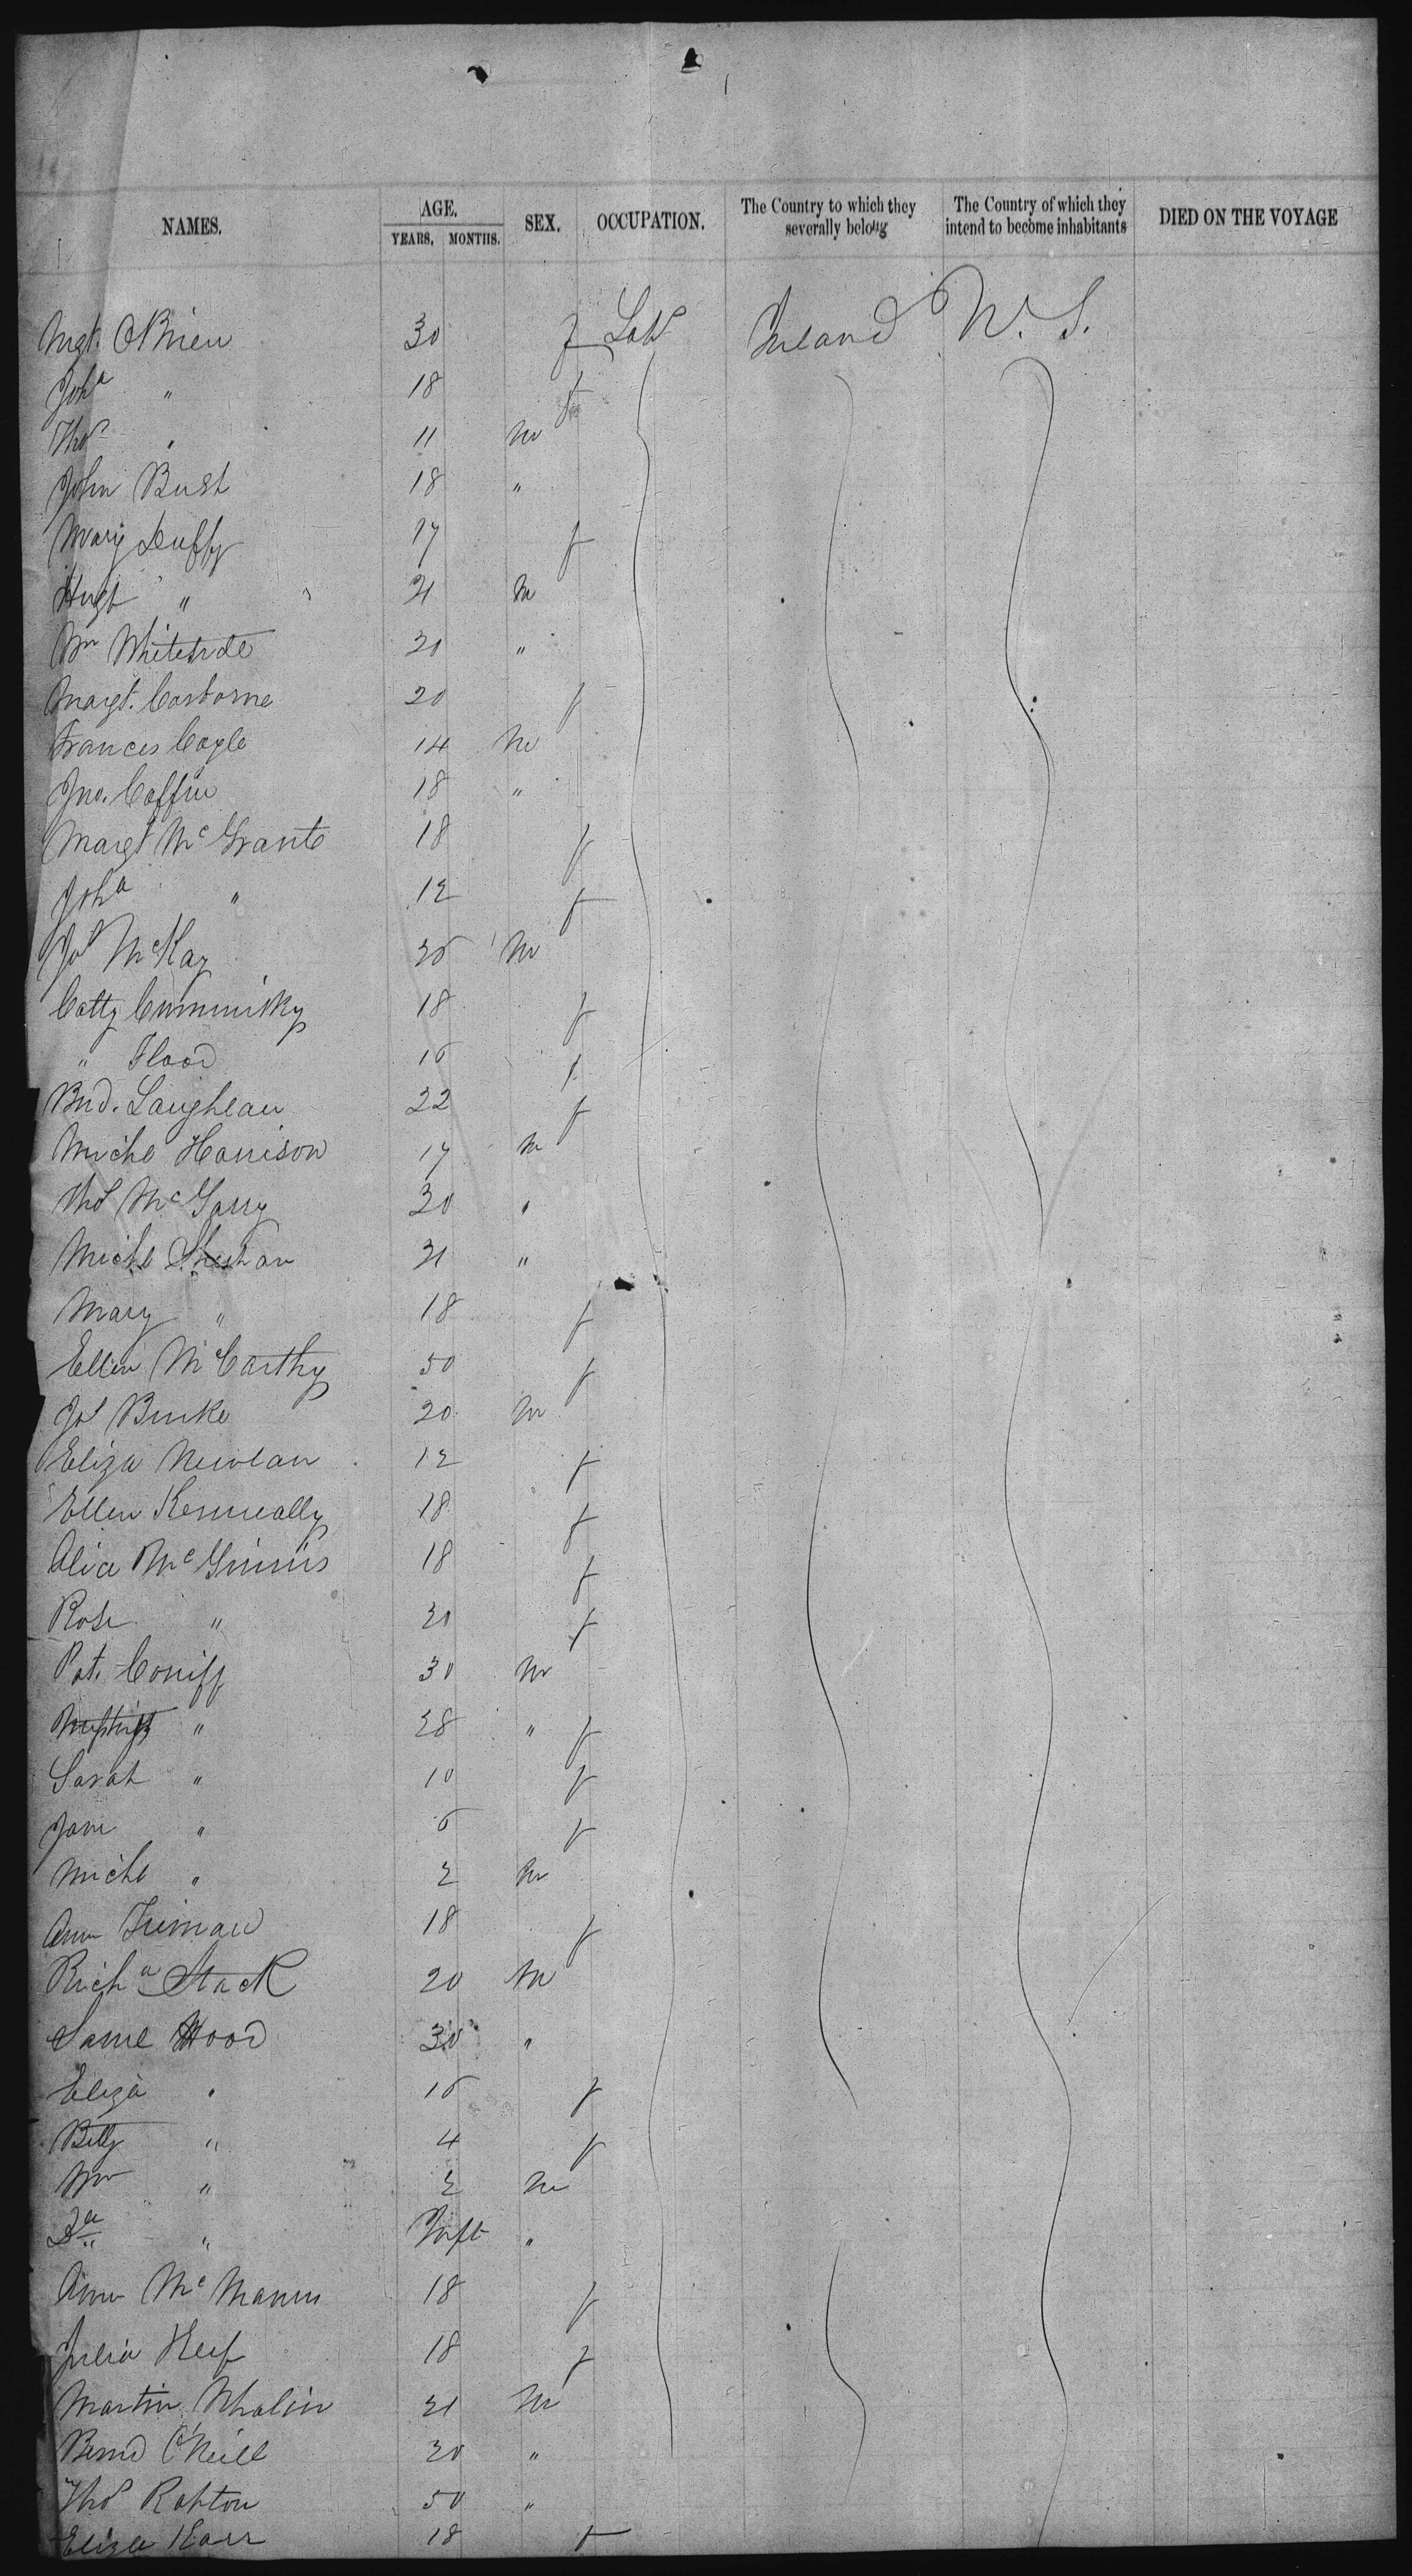 NAMES. AGE. YEARS. MONTHS. SEX. OCCUPATION. The Country to which they severally belong The Country of which they intend to become inhabitants DIED ON THE VOYAGE
Mgt. O'Brien 30 f Labr Ireland U. S.
Joha " 18 f
Thos " 11 m
John Bush 18 "
Mary Duffy 17 f
Hugh " 21 m
Wm Whiteside 20 "
Margt. Cosborne 20 f
Frances Cogle 14 m
Jno. Coffin 18 "
Margt McGrante 18 f
Joha " 12 f
Jos McKay 25 m
Catty Cummisky 18 f
" Flood 16 f
Brid. Laughlan 22 f
Michl Harrison 17 m
Thos McGarry 30 "
Michl Sheehan 21 "
Mary " 18 f
Ellen McCarthy 50 f
Jos Burke 20 m
Eliza Newlan 12 f
Ellen Kenneally 18 f
Alice McGinnis 18 f
Rose " 20 f
Pat. Coniff 30 m
" 28 " f
Sarah " 10 f
Jane " 6 f
Michl " 2 m
Ann 18 f
Richd Stack 20 m
Saml Wood 30 "
Eliza " 16 f
Betty " 4 f
Wm " 2 m
" Inft "
Ann McManus 18 f
Julia 18 f
Martin Whalin 21 m
Bernd O'Neill 20 "
Thos Rohton 50 "
Eliza Karr 18 f